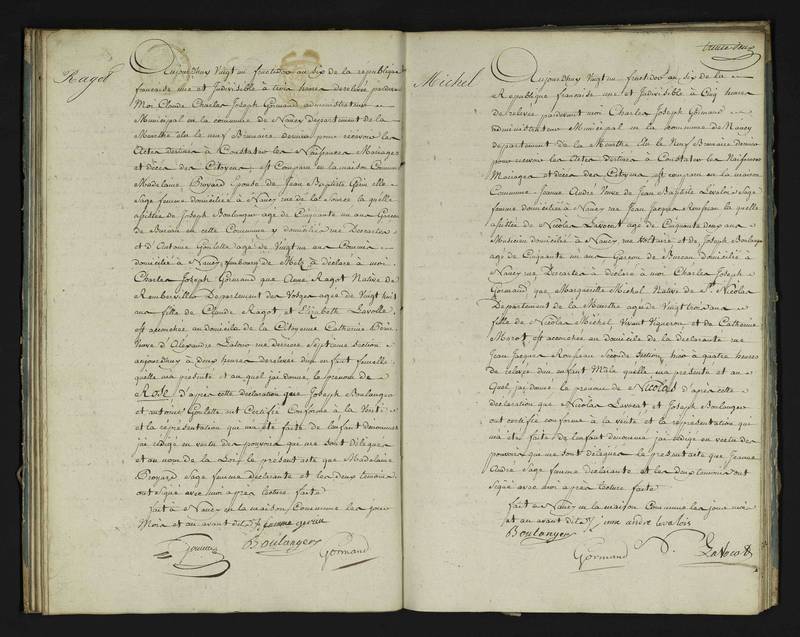 Ragot
Aujourdhuy Vingt un fructidor an six de la republique
francaise une et Indivisible à trois heures de relevée pardevant
Moi Claude Charles Joseph Gormand administrateur
Municipal en la commune de Nancy Departement de la
Meurthe elu le neuf Brumaire dernier pour recevoir les
Actes destinés a Constater les Naissances Mariages
et deces des Citoyens, est Comparu en la maison Commune
Madelaine Broyard Epouse de Jean Baptiste elle
Sage femme domiciliée a Nancy rue de la Source la quelle
assistée de Joseph Boulanger agé de Cinquante un ans Garcon
de Bureau en cette Commune y domicilié rue Descartes
et d'Antoine Goulette agé de Vingt un ans Commis
domicilié à Nancy faubourg de Metz à déclaré à moi
Charles Joseph Gormand que Anne Ragot Native de
Rambervillé Departement des Vosges agée de Vingt huit
ans fille de Claude Ragot et Elizabeth Lavolle
est accouchée au domicile de la Citoyenne Catherine
Veuve d'Alexandre rue Derriere Septieme Section
aujourdhuy à deux heures de relevée d'un enfant femelle
quelle m'a présenté et au quel jai donné le prenom de
Rose d'apres cette déclaration que Joseph Boulanger
et antoine Goulette ont Certifié Conforme à la Verité
et la représentation qui m'a été faite de l'enfant denommé
jai redigé en vertu des pouvoirs qui me sont délégués
et au nom de la Loi, le présent acte que Madelaine
Broyard Sage femme déclarante et les deux temoins
ont signé avec moi apres lecture faite
fait à Nancy en la maison Commune les jour
Mois et an avant dits femme
Boulanger
Gormand
trente deux
Michel
Aujourdhuy Vingt un fructidor an six de la
Republique francaise une et Indivisible à Cinq heures
de relevée pardevant moi Charles Joseph Gormand
administrateur Municipal en la Commune de Nancy
departement de la Meurthe élu le Neuf Brumaire dernier
pour recevoir les Actes destinés à Constater les Naissances
Mariages et deces des Citoyens est comparu en la maison
Commune Jeanne André Veuve de Jean Baptiste Levalois Sage
femme domiciliée à Nancy rue Jean Jacques Rousseau la quelle
assistée de Nicolas Lavocat agé de Cinquante deux ans
Musicien domicilié à Nancy rue Voltaire et de Joseph Boulanger
agé de Cinquante un ans Garcon de Bureau domicilié à
Nancy rue Descartes à déclaré à moi Charles Joseph
Gormand, que Marguerite Michel Native de St Nicolas
Departement de la Meurthe agée de Vingt trois ans
fille de Nicolas Michel Vivant Vigneron et de Catherine
Morot est accouchée au domicile de la déclarante rue
Jean Jacques Rousseau Seconde Section, hier à quatre heures
de relevée d'un enfant Male quelle m'a presenté et au
Quel jai donné le prenom de Nicolas d'après cette
déclaration que Nicolas Lavocat et Joseph Boulanger
ont certifié conforme à la Verité et la représentation qui
m'a été faite de l'enfant denommé jai redigé en vertu des
pouvoirs qui me sont délégués le présent acte que Jeanne
André Sage femme déclarante et les deux temoins ont
Signé avec moi apres lecture faite
fait à Nancy en la maison Commune les jour mois
et an avant dits jenne andre levalois
Boulanger
Gormand
Lavocat